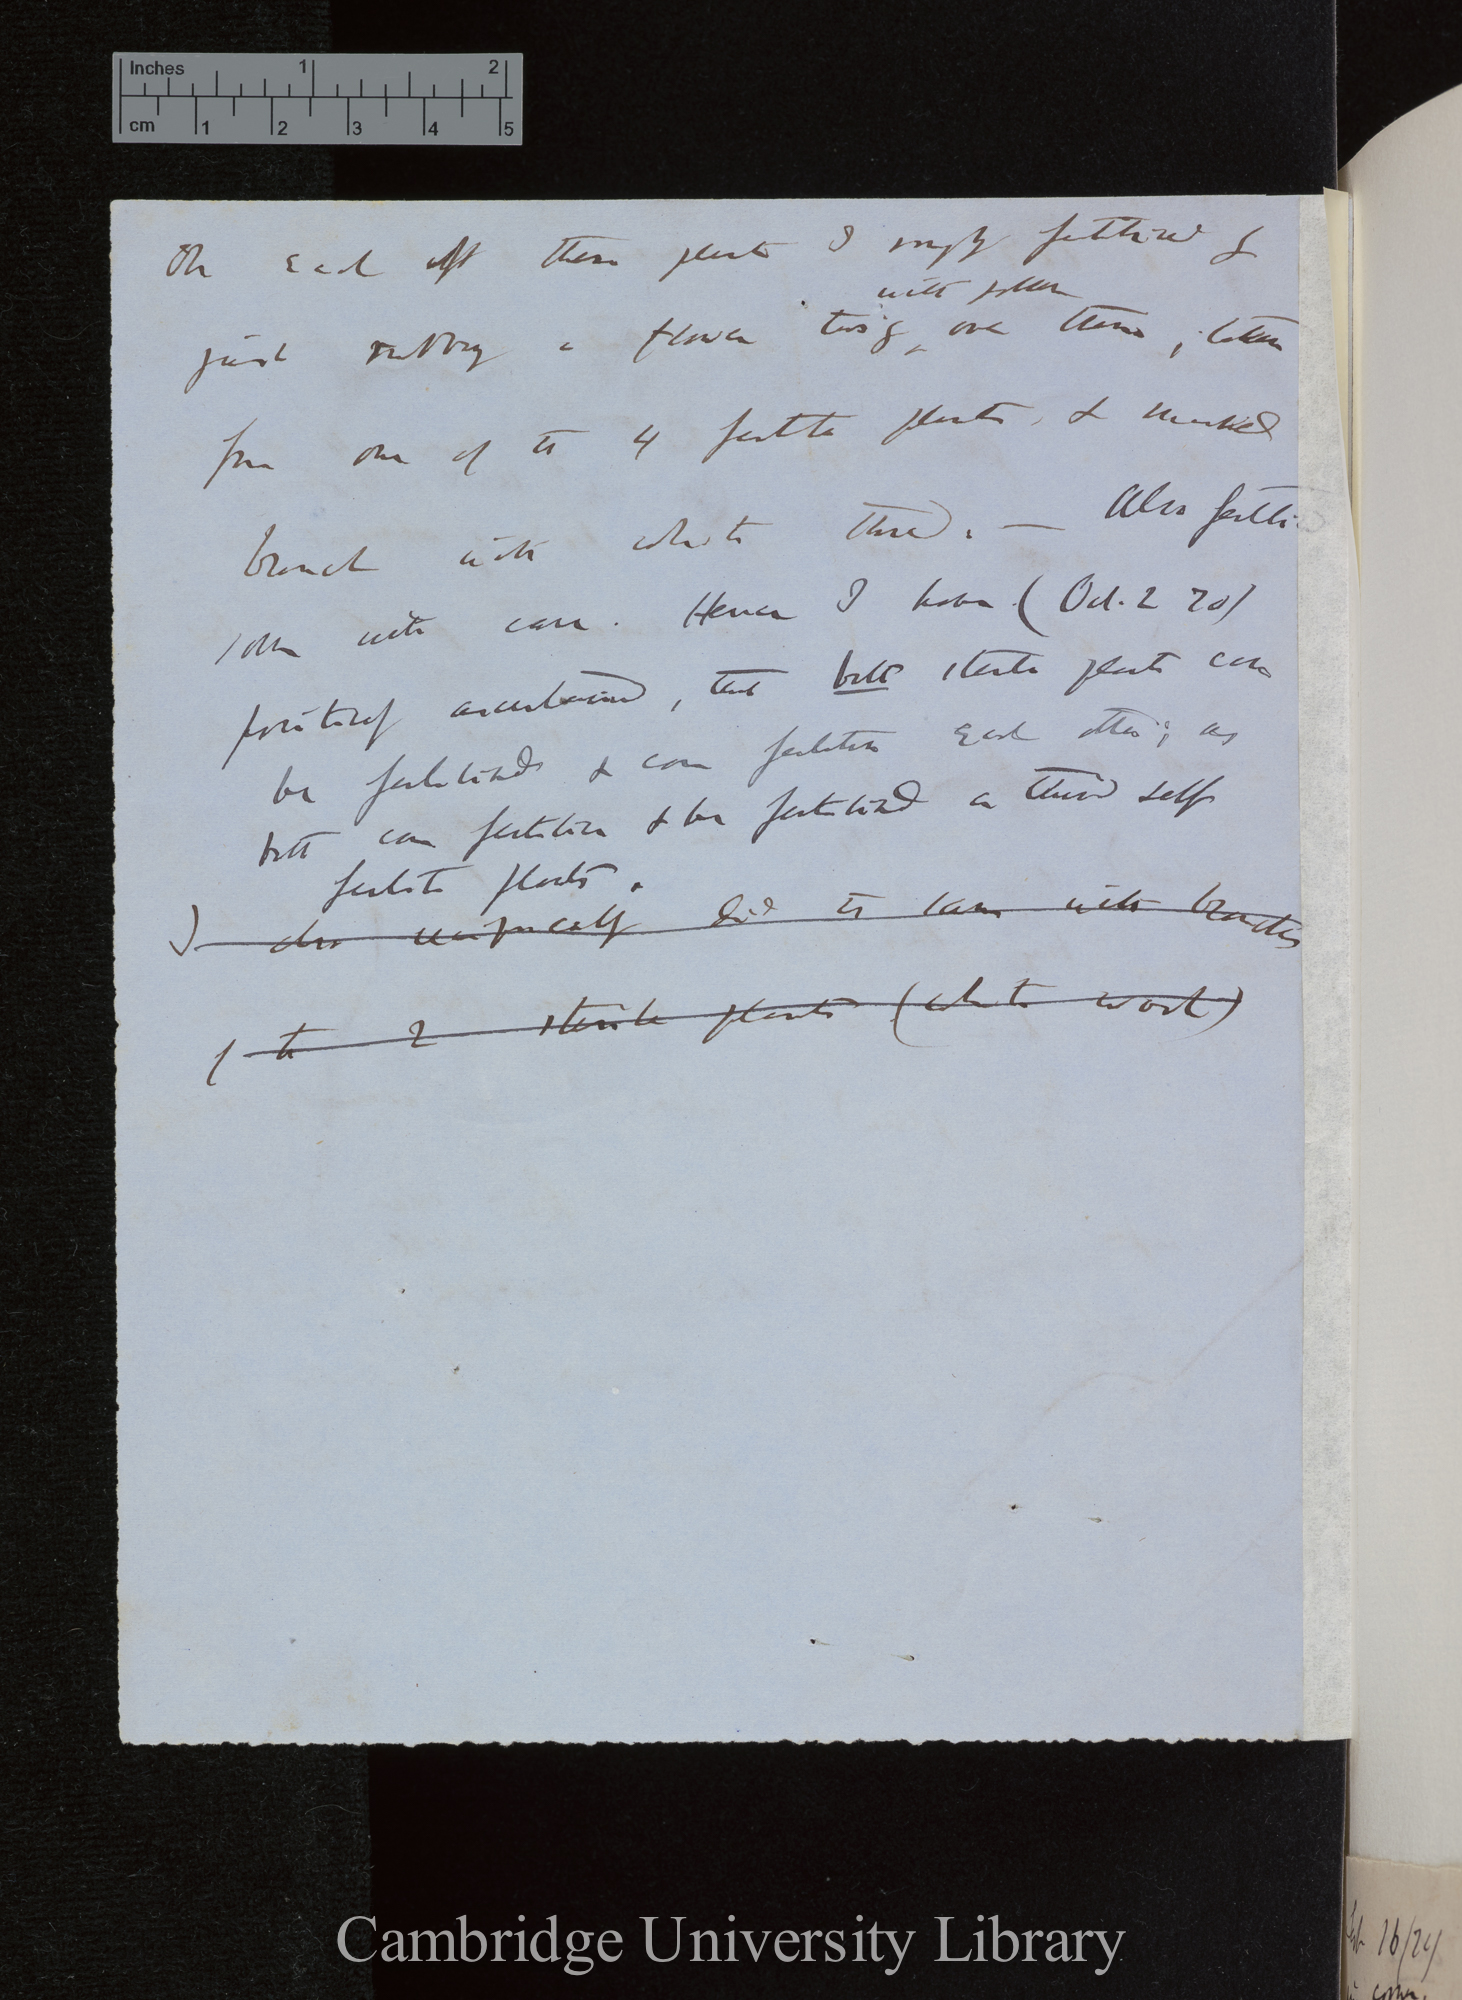 Inches 1 2
cm 1 2 3 4 5
On each of these plants I simply fertilised by
with pollen
just rubbing a flower twig over them, taken
from one of the 4 fertile plants, & marked
branch with white thread. — Also fertilised
some with care. Hence I have (Oct. 2 70)
positively ascertained, that both sterile plants can
be fertilised & can fertilise each other; as
both can fertilise & be fertilised a third self
fertile plants.
I also reciprocally did the same with branches
of the 2 sterile plants (white wool)
16/24
Cambridge University Library